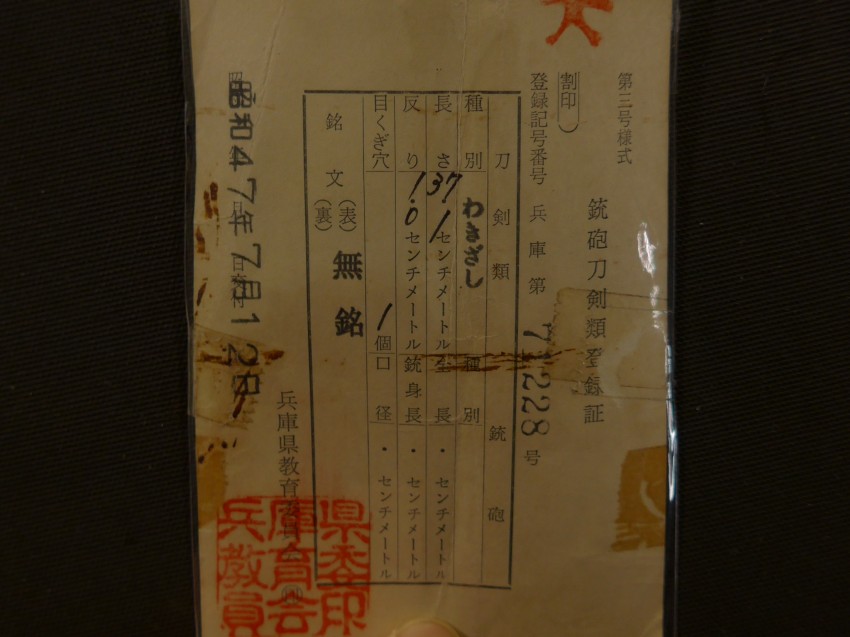 第三号様式
銃砲刀剣類登録証
割印）
登録記号番号 兵庫第71228号
刀剣類 銃砲
種別 わきざし 種別
長さ 37.1センチメートル 全長 ・センチメートル
反り 1.0センチメートル 銃身長 ・センチメートル
目くぎ穴 1個 口径 ・センチメートル
銘文（表）（裏） 無銘
昭和47年7月12日
兵庫県教育委員会